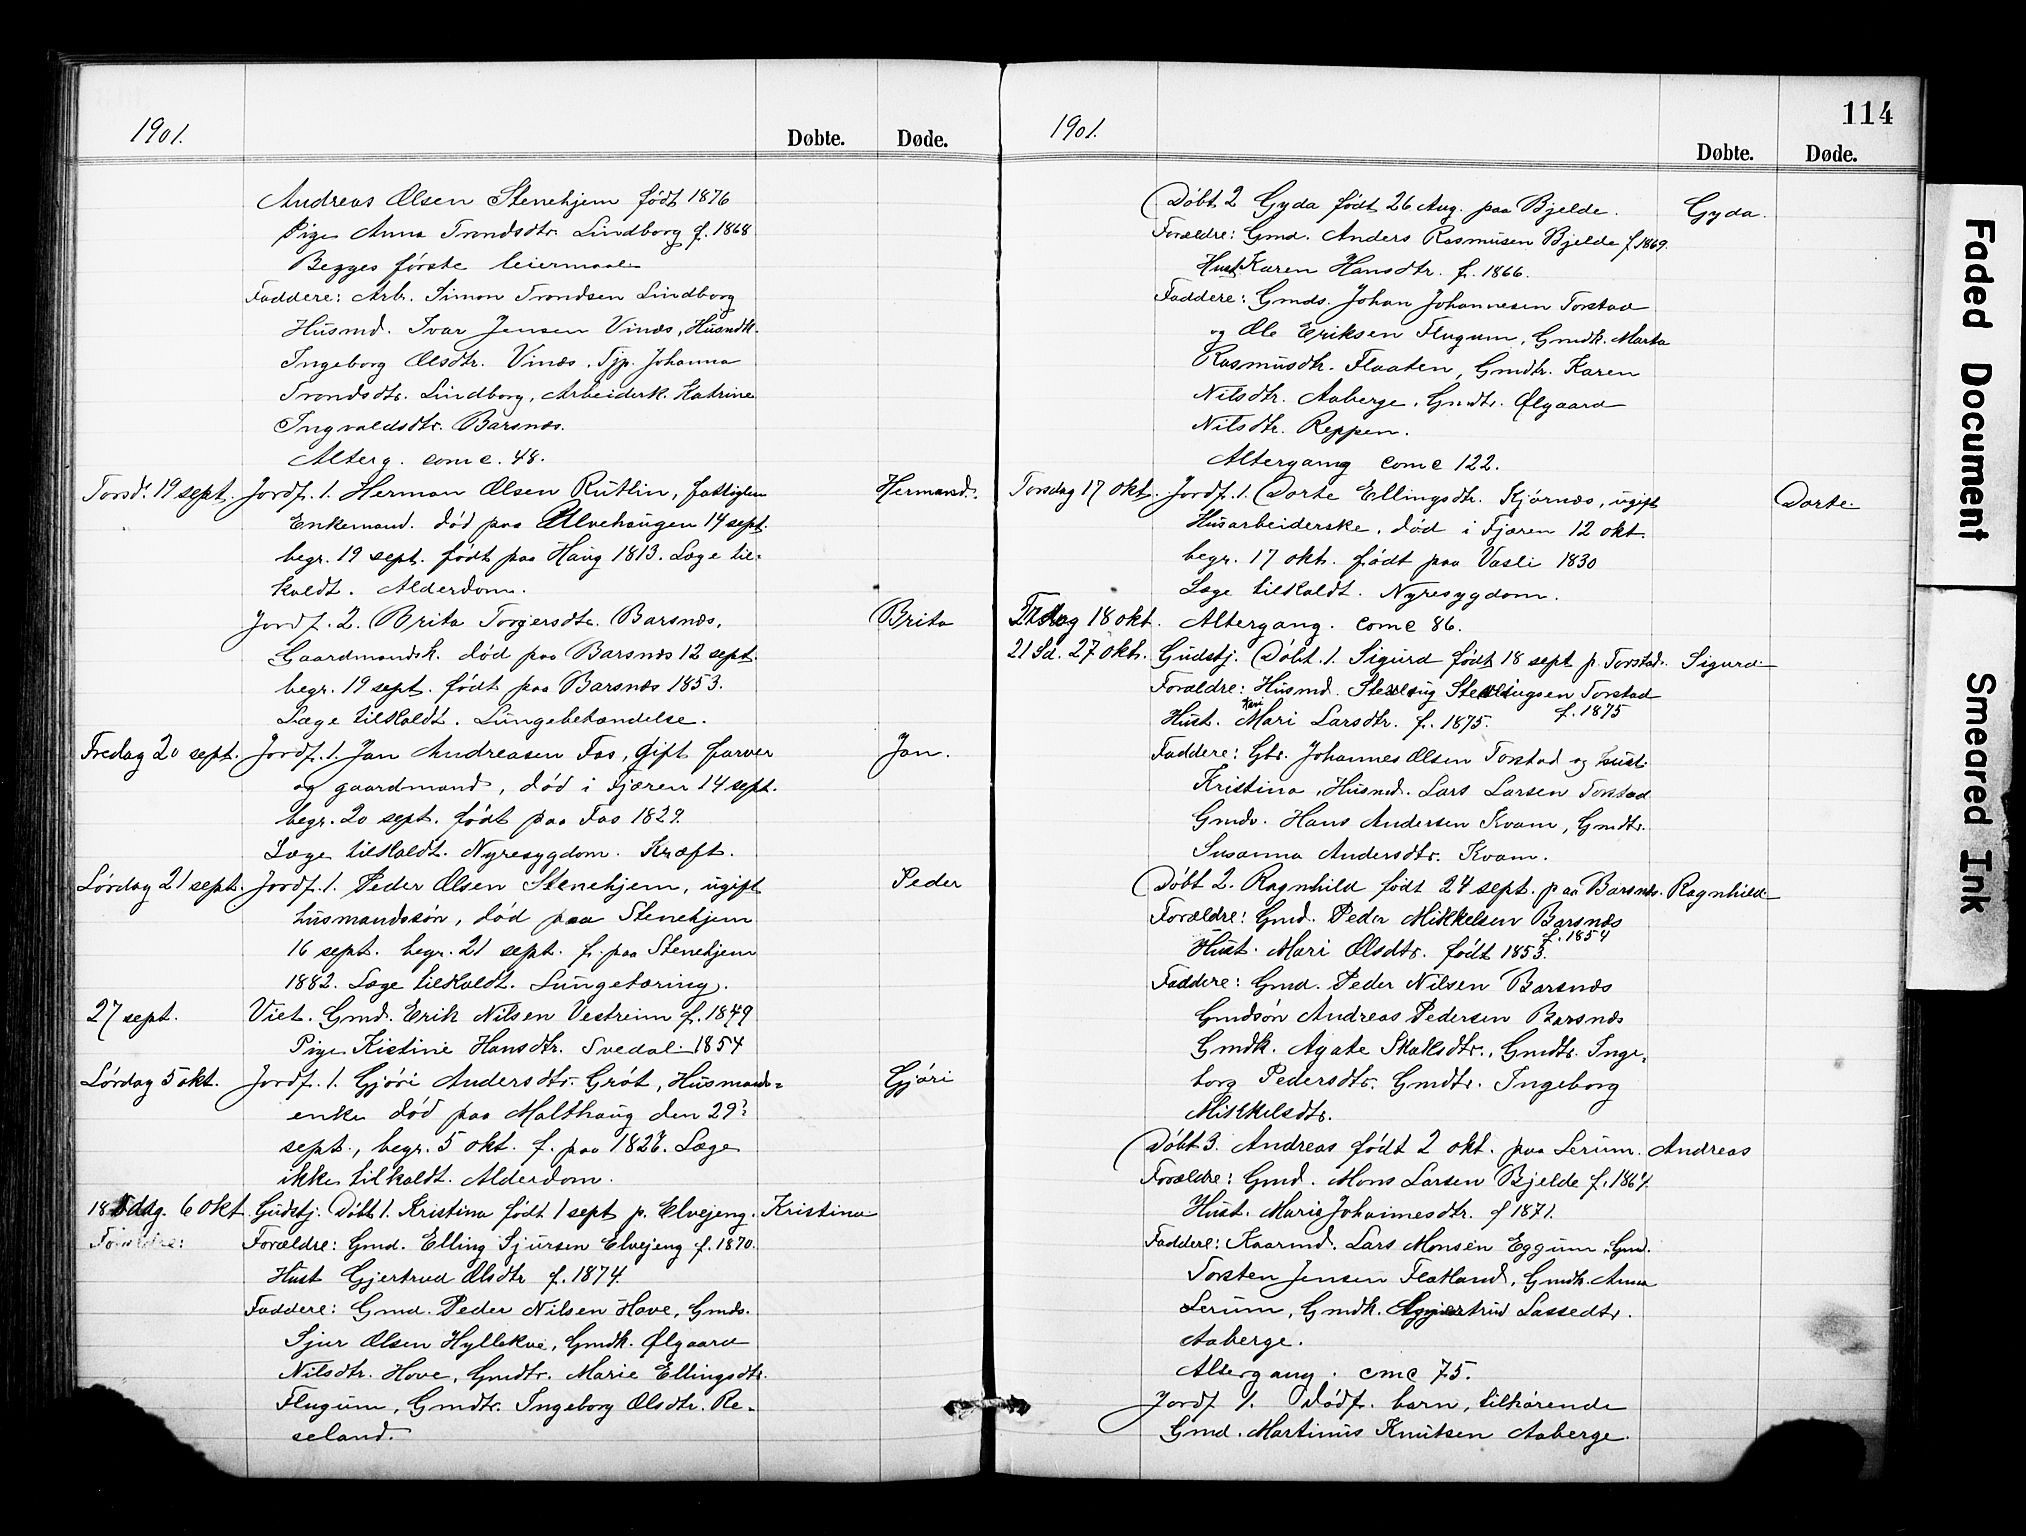 1901.
Døbte.
Døde.
Andreas Olsen Stenehjem født 1876
Pige Anna Trondsdtr. Lindborg f. 1868
Begges første leiermaal
Faddere: Arb. Simon Trondsen Lindborg
Husmd. Ivar Jensen Vinæs, Husmdk.
Ingeborg Olsdtr. Vinæs, Tjp. Johanna
Trondsdtr. Lindborg, Arbeiderk. Katrine
Ingvaldsdtr. Barsnæs.
Alterg. comc. 48.
Torsd. 19 sept. Jordf. 1. Herman Olsen Rutlin, fattiglem Hermand.
Enkemand. død paa Ulvehaugen 14 sept.
begr. 19 sept. født paa Haug 1813. Læge til-
kaldt. Alderdom.
Jordf. 2. Brita Torgersdtr. Barsnæs, Brita
Gaardmandsk. død paa Barsnæs 12 sept.
begr. 19 sept. født paa Barsnæs 1853.
Læge tilkaldt. Lungebetændelse.
Fredag 20 sept. Jordf. 1. Jan Andreasen Fas, gift farver Jan.
og gaardmand, død i Fjæren 14 sept.
begr. 20 sept. født paa Fas 1829.
Læge tilkaldt. Nyresygdom. Kræft.
Lørdag 21 sept. Jordf. 1. Peder Olsen Stenehjem, ugift Peder
husmandssøn, død paa Stenehjem
16 sept. begr. 21 sept. f. paa Stenehjem
1882. Læge tilkaldt. Lungetæring.
27 sept. Viet. Gmd. Erik Nilsen Vestreim f. 1849
Pige Kistine Hansdtr. Svedal 1854
Lørdag 5 okt. Jordf. 1. Gjøri Andersdtr. Grøt, Husmands- Gjøri
enke død paa Malthaug den 29
sept., begr. 5 okt. f. paa 1826. Læge
ikke tilkaldt. Alderdom.
18 6 okt. Gudstj. Døbt 1. Kristina født 1 sept p. Elvejeng. Kristina
Forældre: Forældre: Gmd. Elling Sjursen Elvejeng f. 1870.
Hust Gjertrud Olsdtr f. 1874.
Faddere: Gmd. Peder Nilsen Hove, Gmds.
Sjur Olsen Hyllekve, Gmdk. Ølgaard
Nilsdtr. Hove, Gmdtr. Marie Ellingsdtr.
Flugum, Gmdtr. Ingeborg Olsdtr. Re-
seland.
1901.
114
Døbte.
Døde.
Døbt 2 Gyda født 26 Aug. paa Bjelde. Gyda.
Forældre: Gmd. Anders Rasmusen Bjelde f. 1869.
Hust Karen Hansdtr. f. 1866.
Faddere: Gmds. Johan Johannesen Torstad
og Ole Eriksen Flugum, Gmdk. Marta
Rasmusdtr. Flaaten, Gmdtr. Karen
Nilsdtr. Aaberge, Gmdtr. Ølgaard
Nilsdtr. Reppen.
Altergang comc 122.
Torsdag 17 okt. Jordf. 1. Dorte Ellingsdtr. Kjørnæs, ugift Dorte.
Husarbeiderske, død i Fjæren 12 okt.
begr. 17 okt. født paa Vasli 1830
Læge tilkaldt. Nyresygdom.
Fredag 18 okt. Altergang. comc 86.
21 Sd. 27 okt. Gudstj. Døbt. 1. Sigurd født 18 sept p. Torstad. Sigurd
Forældre: Husmd. Torstad
f. 1875
Kari
Hust. Mari Larsdtr. f. 1875.
Faddere: Gbr. Johannes Olsen Torstad og hust.
Kristina, Husmd. Lars Larsen Torstad
Gmds. Hans Andersen Kvam, Gmdtr.
Susanna Andersdtr. Kvam.
Døbt 2. Ragnhild født 24 sept. paa Barsnæs. Ragnhild
Forældre: Gmd. Peder Mikkelsen Barsnæs
f. 1854
Hust. Mari Olsdtr. født 1853.
Faddere: Gmd. Peder Nilsen Barsnæs
Gmdsøn Andreas Pedersen Barsnæs
Gmdk. Agate Skaksdtr., Gmdtr. Inge-
borg Pedersdtr. Gmdtr. Ingeborg
Mikkelsdtr.
Døbt 3. Andreas født 2 okt. paa Lerum. Andreas
Forældre: Gmd. Mons Larsen Bjelde f. 1867.
Hust. Marie Johannesdtr. f 1871.
Faddere: Kaarmd. Lars Monsen Eggum, Gmd.
Torsten Jensen Flatland, Gmdk. Anna
Lerum, Gmdk. Lassedtr.
Aaberge.
Altergang. cmc 75.
Jordf 1. Dødf. barn, tilhørende
Gmd. Martinus Knutsen Aaberge.
Faded Document
Smeared Ink